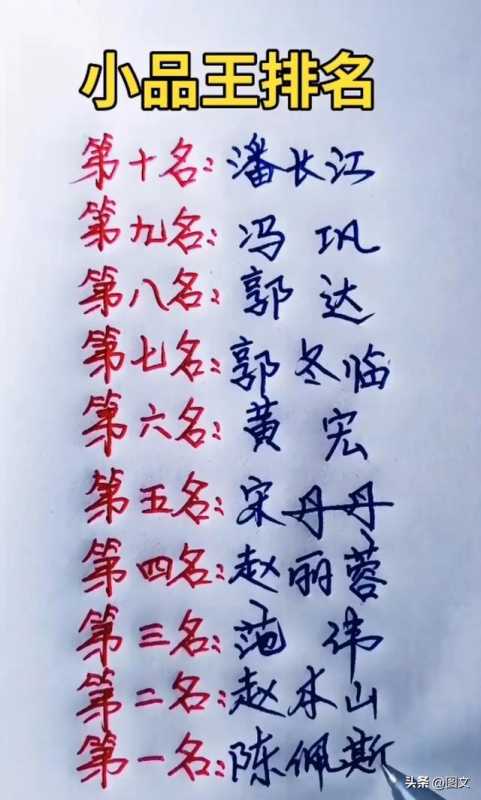 小品王排名
第十名：潘长江
第九名：冯巩
第八名：郭达
第七名：郭冬临
第六名：黄宏
第五名：宋丹丹
第四名：赵丽蓉
第三名：范伟
第二名：赵本山
第一名：陈佩斯
头条 @图文